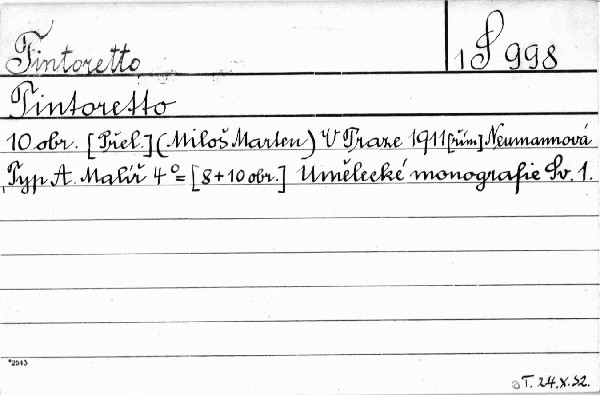 Tintoretto
1 S 998
Tintoretto
10 obr. [Přel.] (Miloš Marten) V Praze 1911 [řím] Neumannová
Typ A. Malíř 4° = [8 + 10 obr.] Umělecké monografie Sv. 1.
*2043
T. 24.X.32.